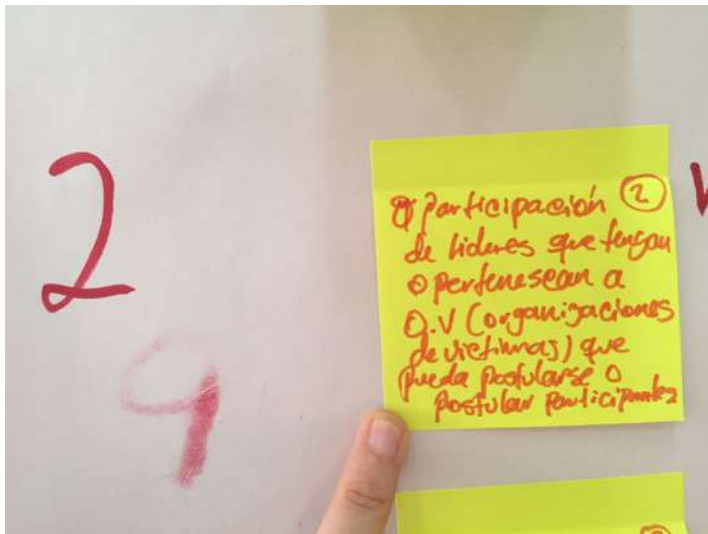 2
9
Participación 2
de lideres que tengan
o pertenescan a
O.V (organizaciones
de victimas) que
pueda postularse o
postular participantes